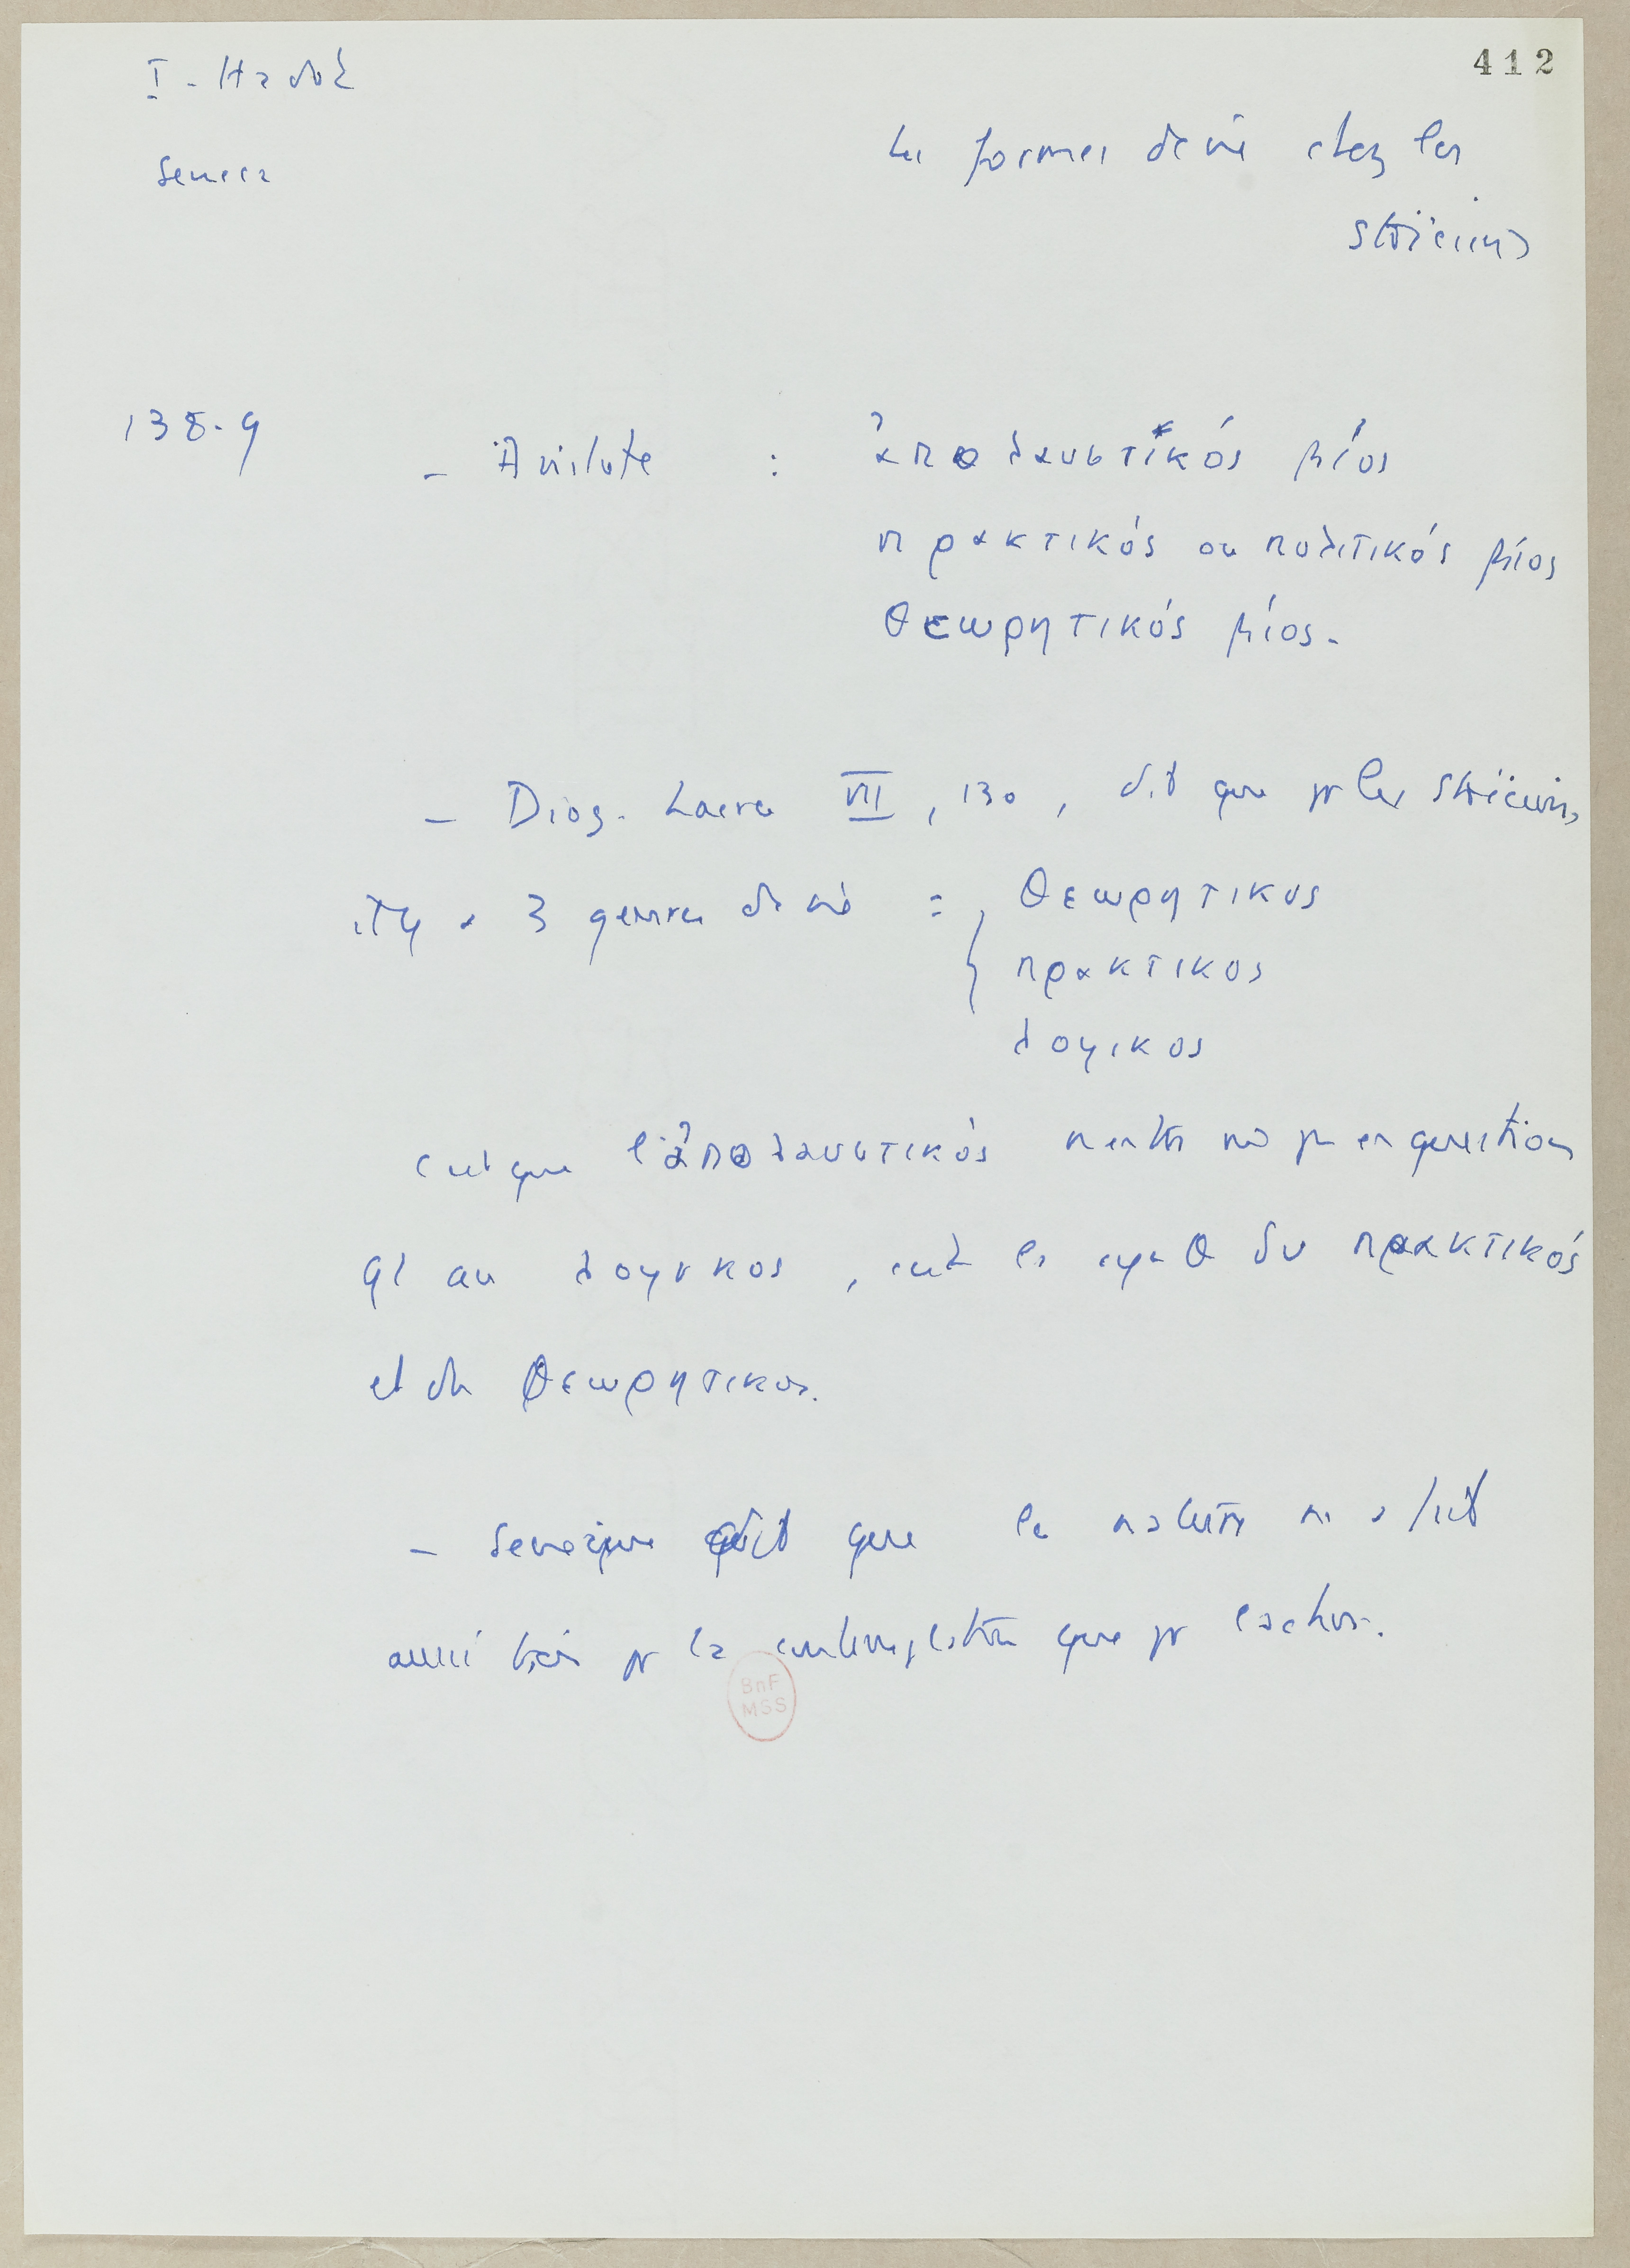 I. Hadot
412
Seneca
Les formes de vie chez les
stoïciens
138-9
- Aristote : ἀπολαυστικός βίος
πρακτικός ou πολιτικός βίος
θεωρητικός βίος.
- Diog. Laerce VII, 130, dit que pr les stoïciens,
il y a 3 genres de vie = θεωρητικος
πρακτικος
λογικος
c'est que l'ἀπολαυστικός n'entre pas en question
qt au λογικος, c'est la du πρακτικός
et du θεωρητικος.
- Seneque dit que la nature ns a fait
aussi bien pr la contemplation que pr l'action.
BnF
MSS